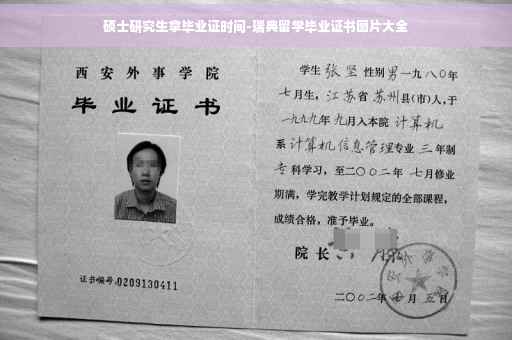 硕士研究生拿毕业证时间-瑞典留学毕业证书图片大全
西安外事学院
毕业证书
证书编号:0209130411
学生 张坚 性别 男 一九八〇年
七月生, 江苏省 苏州 县(市)人, 于
一九九九年 九月入本院 计算机
系 计算机信息管理 专业 三 年制
专 科学习, 至二〇〇二年 七月修业
期满, 学完教学计划规定的全部课程,
成绩合格, 准予毕业。
院长
二〇〇二年 七月 五日